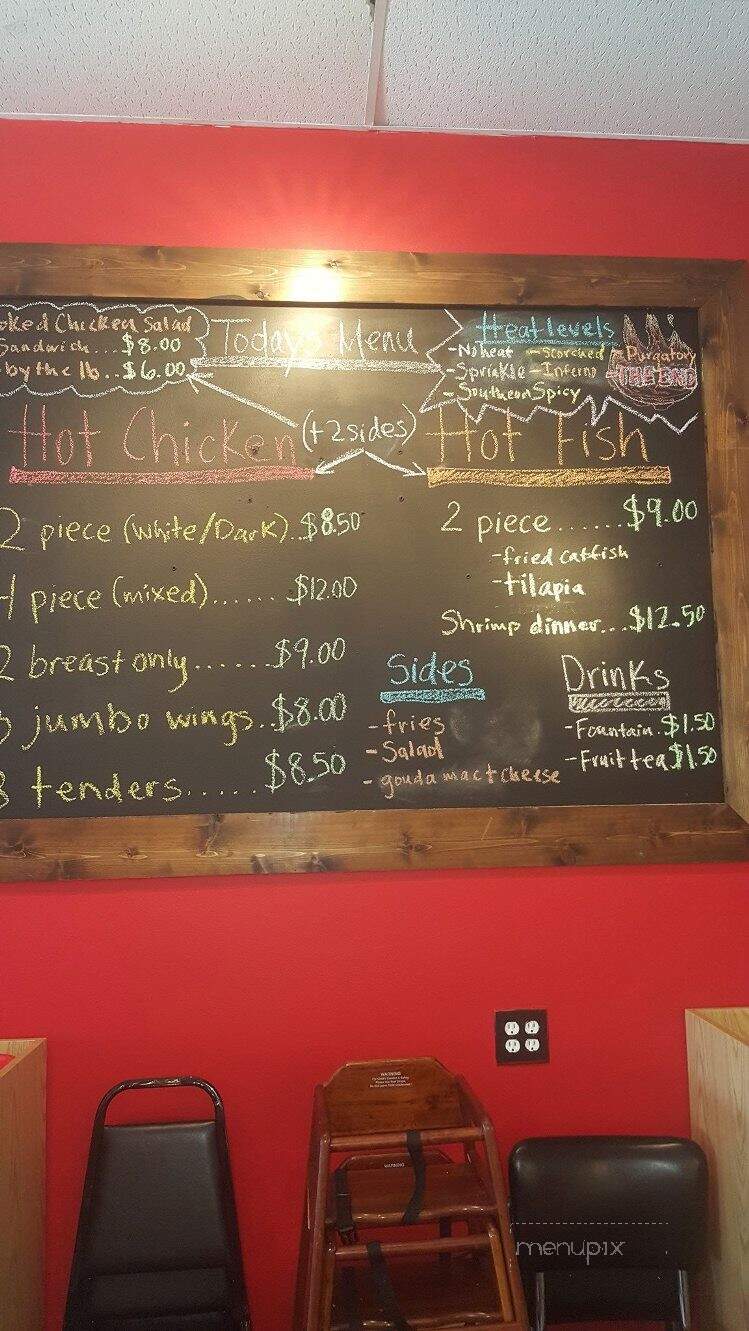 oked Chicken Salad
Sandwich...$8.00
by the lb..$6.00
Today's Menu
Heat levels
-No heat
-Sprinkle
-Southern Spicy
-Scorched
-Inferno
-Purgatory
-THE END
Hot Chicken
(+2sides)
Hot Fish
2 piece (White/Dark)..$8.50
4 piece (mixed)......$12.00
2 breast only......$9.00
jumbo wings..$8.00
3 tenders......$8.50
2 piece......$9.00
-fried catfish
-tilapia
Shrimp dinner...$12.50
Sides
-fries
-Salad
-gouda mac+cheese
Drinks
-Fountain.$1.50
-Fruit tea $1.50
WARNING
WARNING
menupix